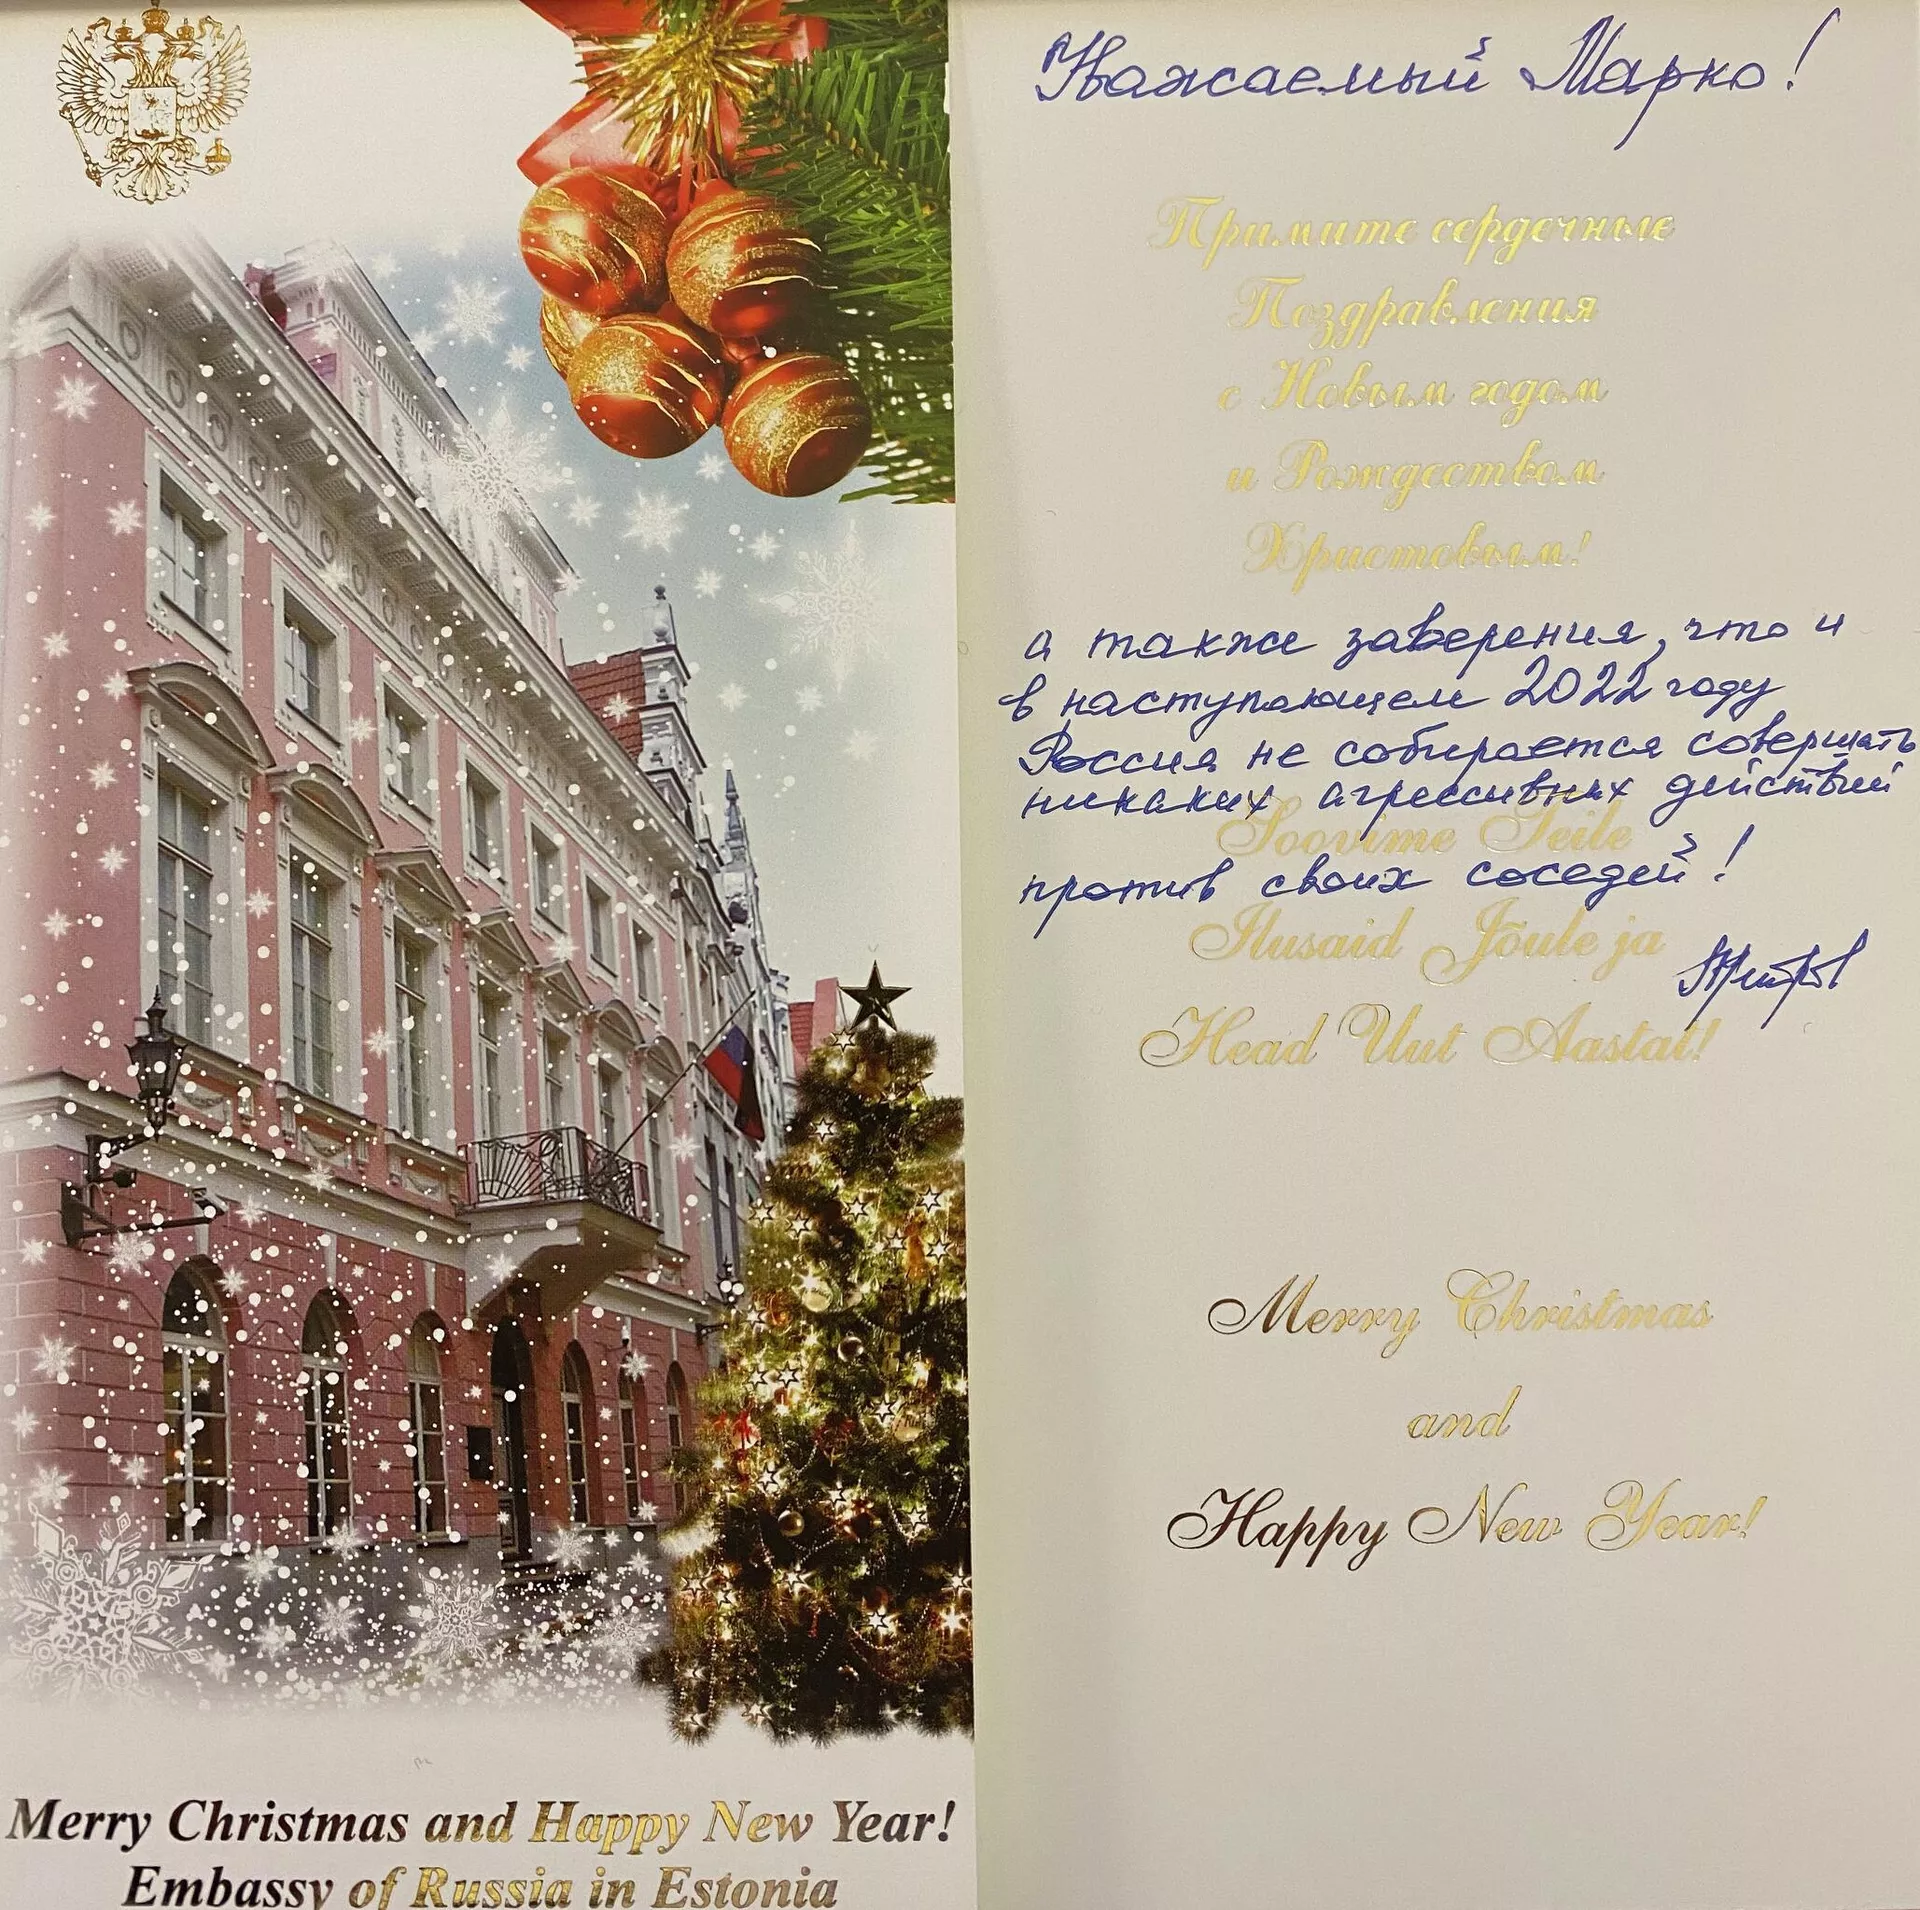 Merry Christmas and Happy New Year!
Embassy of Russia in Estonia
Уважаемый Марко!
Примите сердечные
Поздравления
с Новым годом
и Рождеством
Христовым!
а также заверения, что и
в наступающем 2022 году
Россия не собирается совершать
никаких агрессивных действий
против своих соседей!
Soovime Teile
Ilusaid Jõule ja
Head Uut Aastat!
Merry Christmas
and
Happy New Year!